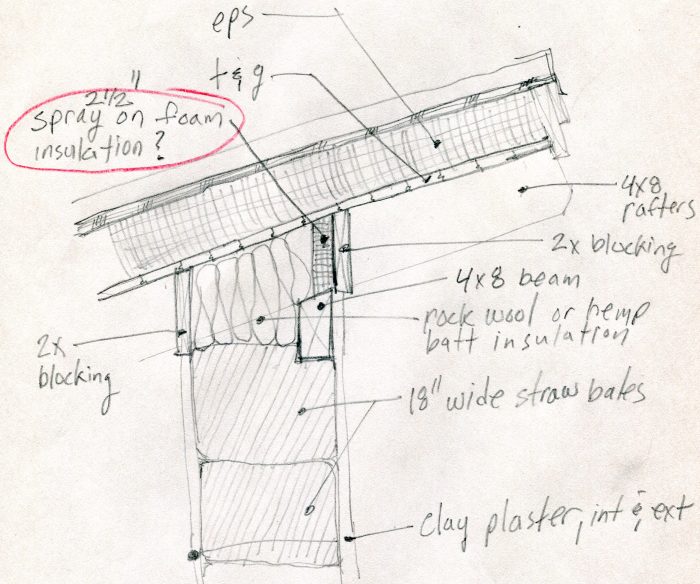 eps
t&g
2 1/2"
spray on foam
insulation?
4x8
rafters
2x blocking
4x8 beam
rock wool or hemp
batt insulation
2x
blocking
18" wide straw bales
clay plaster, int & ext